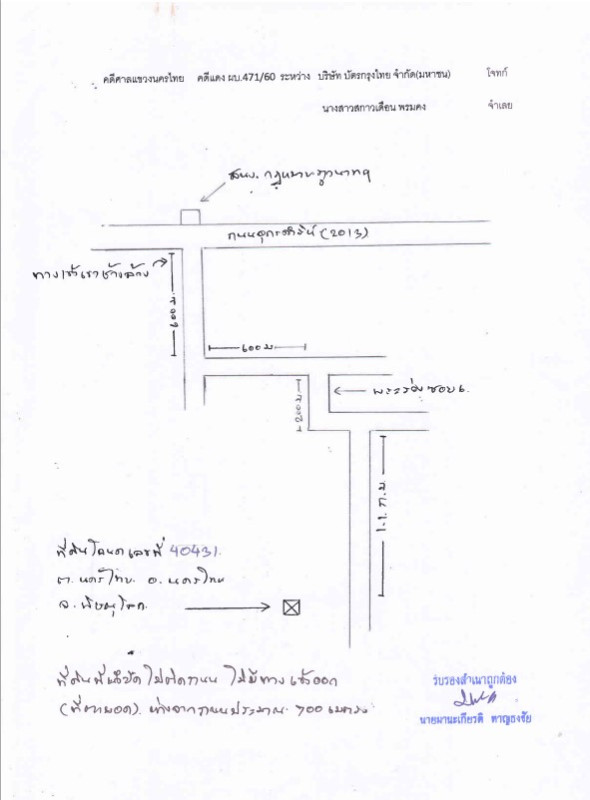 คดีศาลแขวงนครไทย คดีแดง ผบ.471/60 ระหว่าง บริษัท บัตรกรุงไทย จำกัด(มหาชน) โจทก์
นางสาวสกาวเดือน พรมคง จำเลย
สนง. กฎหมาย
ถนนอุดรดิรัน (2013)
ทางเข้าเขาช้างล้วง
600 ม
600 ม
พระร่วง ซอย 6.
200 ม
1.1 ก.ม
ที่ดินโฉนดเลขที่ 40431.
ต. นครไทย. อ. นครไทย
จ. พิษณุโลก.
ที่ดินที่แจ้งขัด ไม่ติดถนน ไม่มีทางเข้าออก
(ที่ตาบอด). ห่างจากถนนประมาณ 700 เมตร
รับรองสำเนาถูกต้อง
นายมานะเกียรติ หาญธงชัย